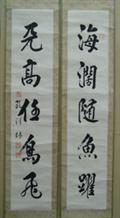 海濶随魚躍
天高任鳥飛